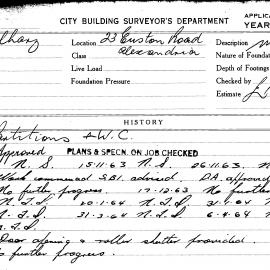 CITY BUILDING SURVEYOR'S DEPARTMENT APPLIC
YEAR
Location 23 Euston Road Description
Class Alexandria Nature of Foundat
Live Load Depth of Footings
Foundation Pressure Checked by
Estimate £
HISTORY
Partitions & W.C.
Approved PLANS & SPECN. ON JOB CHECKED
N.S. 15.11.63 N.S. 26.11.63 N
Work commenced SBI. advised. DA. approved
No further progress. 17.12.63 No further
N.T.S 20.1.64 N.T.S
N.T.S. 31.3.64 N.T.S 6.4.64
Door opening & roller shutter provided.
No further progress.